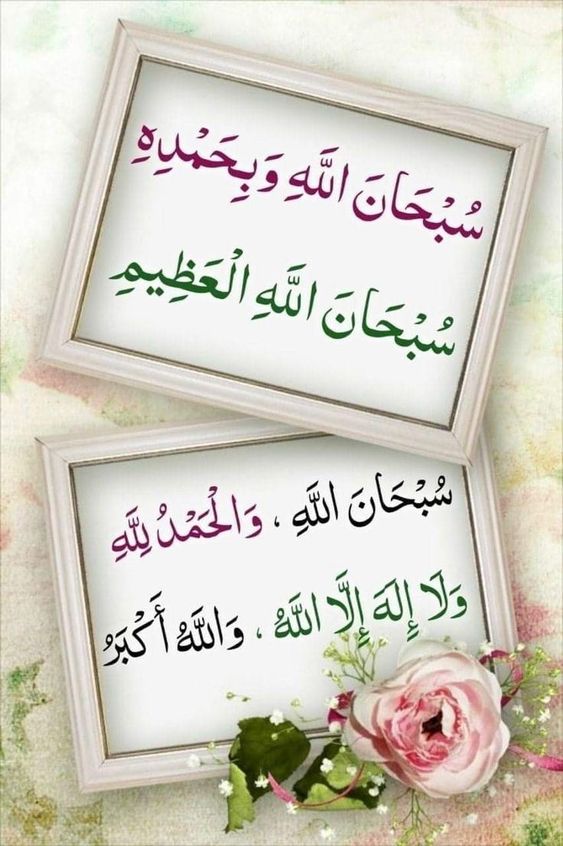 سُبْحَانَ اللَّهِ وَبِحَمْدِهِ
سُبْحَانَ اللَّهِ الْعَظِيمِ
سُبْحَانَ اللَّهِ ، وَالْحَمْدُ لِلَّهِ
وَلَا إِلَهَ إِلَّا اللَّهُ ، وَاللَّهُ أَكْبَرُ